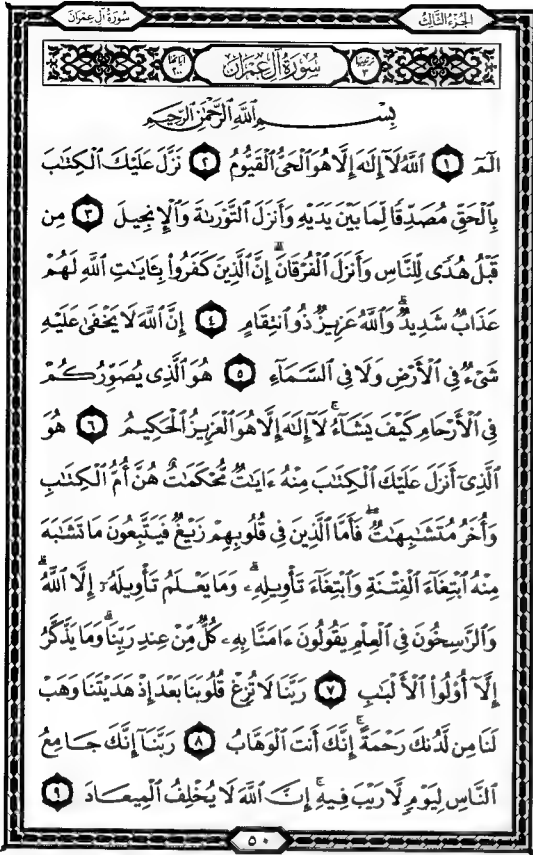 الجزء الثالث
سورة آل عمران
ترتيبها ٣ سُورَةُ آلِ عِمْرَانَ آياتها ٢٠٠
بِسْمِ ٱللَّهِ ٱلرَّحْمَٰنِ ٱلرَّحِيمِ
الٓمٓ ١ ٱللَّهُ لَآ إِلَٰهَ إِلَّا هُوَ ٱلْحَىُّ ٱلْقَيُّومُ ٢ نَزَّلَ عَلَيْكَ ٱلْكِتَٰبَ
بِٱلْحَقِّ مُصَدِّقًا لِّمَا بَيْنَ يَدَيْهِ وَأَنزَلَ ٱلتَّوْرَىٰةَ وَٱلْإِنجِيلَ ٣ مِن
قَبْلُ هُدًى لِّلنَّاسِ وَأَنزَلَ ٱلْفُرْقَانَ ۗ إِنَّ ٱلَّذِينَ كَفَرُوا۟ بِـَٔايَٰتِ ٱللَّهِ لَهُمْ
عَذَابٌ شَدِيدٌ ۗ وَٱللَّهُ عَزِيزٌ ذُو ٱنتِقَامٍ ٤ إِنَّ ٱللَّهَ لَا يَخْفَىٰ عَلَيْهِ
شَىْءٌ فِى ٱلْأَرْضِ وَلَا فِى ٱلسَّمَآءِ ٥ هُوَ ٱلَّذِى يُصَوِّرُكُمْ
فِى ٱلْأَرْحَامِ كَيْفَ يَشَآءُ ۚ لَآ إِلَٰهَ إِلَّا هُوَ ٱلْعَزِيزُ ٱلْحَكِيمُ ٦ هُوَ
ٱلَّذِىٓ أَنزَلَ عَلَيْكَ ٱلْكِتَٰبَ مِنْهُ ءَايَٰتٌ مُّحْكَمَٰتٌ هُنَّ أُمُّ ٱلْكِتَٰبِ
وَأُخَرُ مُتَشَٰبِهَٰتٌ ۖ فَأَمَّا ٱلَّذِينَ فِى قُلُوبِهِمْ زَيْغٌ فَيَتَّبِعُونَ مَا تَشَٰبَهَ
مِنْهُ ٱبْتِغَآءَ ٱلْفِتْنَةِ وَٱبْتِغَآءَ تَأْوِيلِهِۦ ۗ وَمَا يَعْلَمُ تَأْوِيلَهُۥٓ إِلَّا ٱللَّهُ ۗ
وَٱلرَّٰسِخُونَ فِى ٱلْعِلْمِ يَقُولُونَ ءَامَنَّا بِهِۦ كُلٌّ مِّنْ عِندِ رَبِّنَا ۗ وَمَا يَذَّكَّرُ
إِلَّآ أُو۟لُوا۟ ٱلْأَلْبَٰبِ ٧ رَبَّنَا لَا تُزِغْ قُلُوبَنَا بَعْدَ إِذْ هَدَيْتَنَا وَهَبْ
لَنَا مِن لَّدُنكَ رَحْمَةً ۚ إِنَّكَ أَنتَ ٱلْوَهَّابُ ٨ رَبَّنَآ إِنَّكَ جَامِعُ
ٱلنَّاسِ لِيَوْمٍ لَّا رَيْبَ فِيهِ ۚ إِنَّ ٱللَّهَ لَا يُخْلِفُ ٱلْمِيعَادَ ٩
٥٠